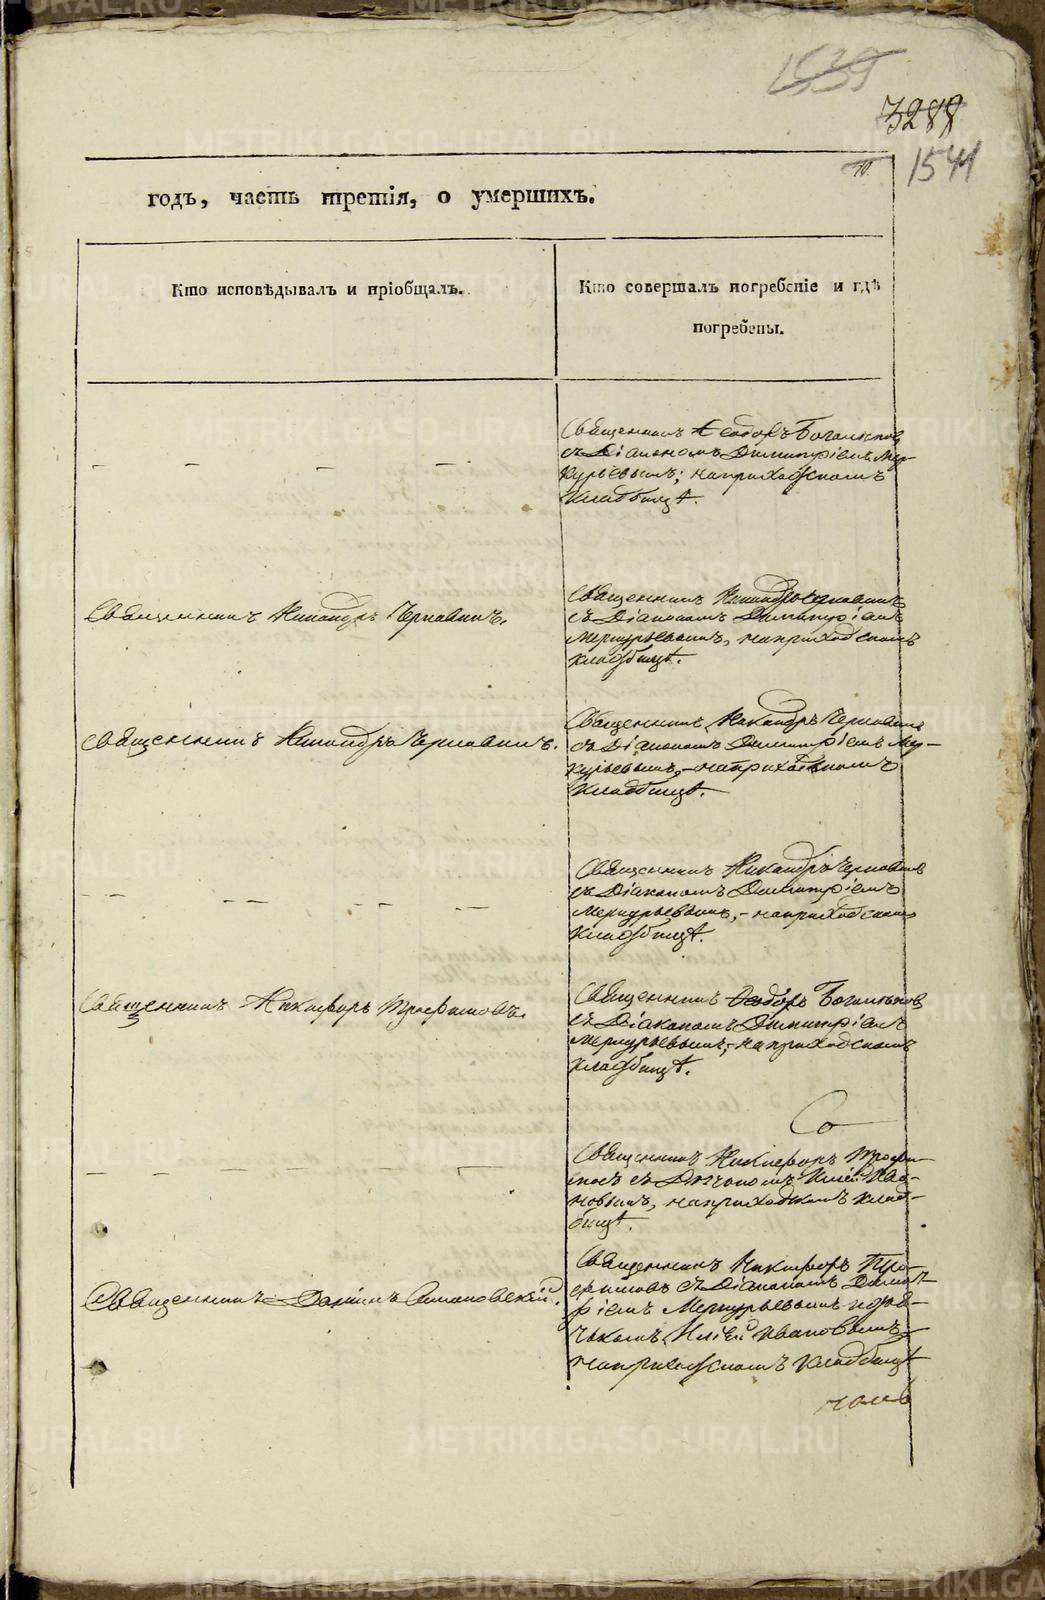 1539
3288
1541
годъ, часть третія, о умершихъ.
Кто исповѣдывалъ и пріобщалъ.
Кто совершалъ погребеніе и гдѣ
погребены.
Священникъ Ѳеодоръ Богомолов
съ Діакономъ Димитріемъ Мер-
курьевымъ; на приходскомъ
кладбищѣ.
Священникъ Никандръ Чернавинъ.
Священникъ Никандръ Чернавинъ
съ Діакономъ Димитріемъ
Меркурьевымъ, на приходскомъ
кладбищѣ.
Священникъ Никандръ Чернавинъ.
Священникъ Никандръ Чернавинъ
съ Діакономъ Димитріемъ Мер-
курьевымъ,-на приходскомъ
кладбищѣ.
Священникъ Никандръ Чернавинъ
съ Діакономъ Димитріемъ
Меркурьевымъ,-на приходскомъ
кладбищѣ.
Священникъ Никифоръ Трофимовъ.
Священникъ Ѳеодоръ
съ Діакономъ Димитріемъ
Меркурьевымъ,-на приходскомъ
кладбищѣ.
Со
Священникъ Никифоръ Трофи-
мовъ съ Иліей Ива-
новымъ, на приходскомъ клад-
бищѣ.
Священникъ
Священникъ Никифоръ Тро-
фимовъ съ Діакономъ Димит-
ріемъ Меркурьевымъ
Иліей Ивановымъ
на приходскомъ кладбищѣ